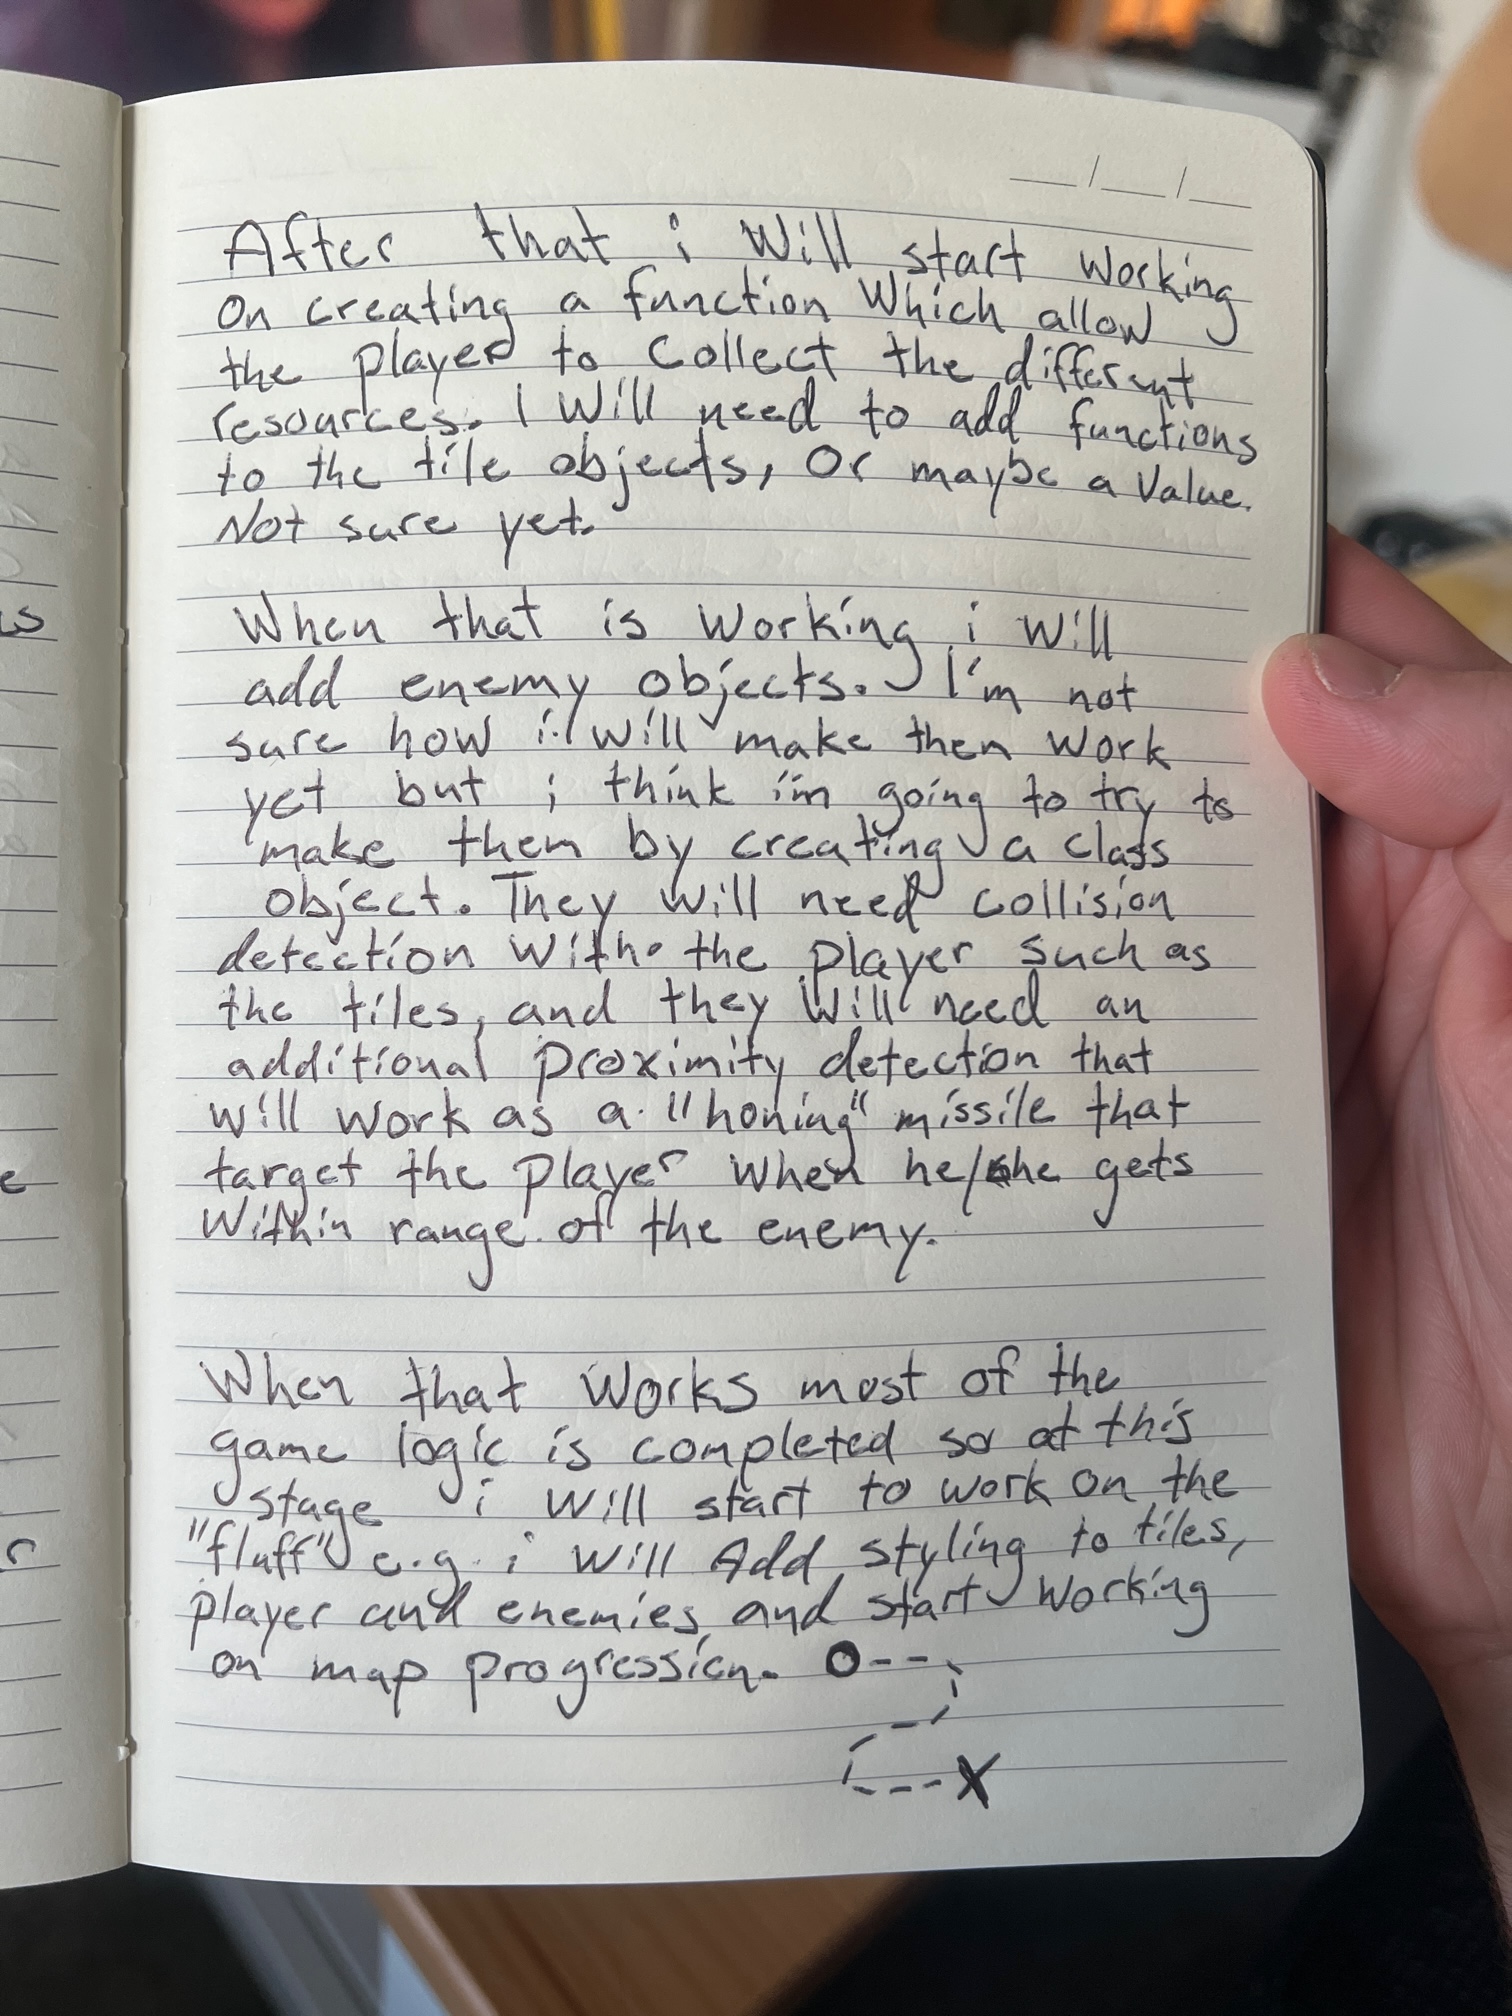 After that i Will start working
On creating a function Which allow
the player to Collect the different
resources. I Will need to add functions
to the tile objects, Or maybe a Value.
Not sure yet.
When that is Working i Will
add enemy objects. I'm not
sure how i will make then work
yet but i think i'm going to try to
make them by creating a class
object. They Will need collision
detection With the player such as
the tiles, and they Will need an
additional proximity detection that
will work as a "honing" missile that
target the player When he/she gets
Within range of the enemy.
When that Works most of the
game logic is completed so at this
stage i Will start to work on the
"fluff" e.g. i Will Add styling to tiles,
player and enemies, and start Working
on map progression. O
X